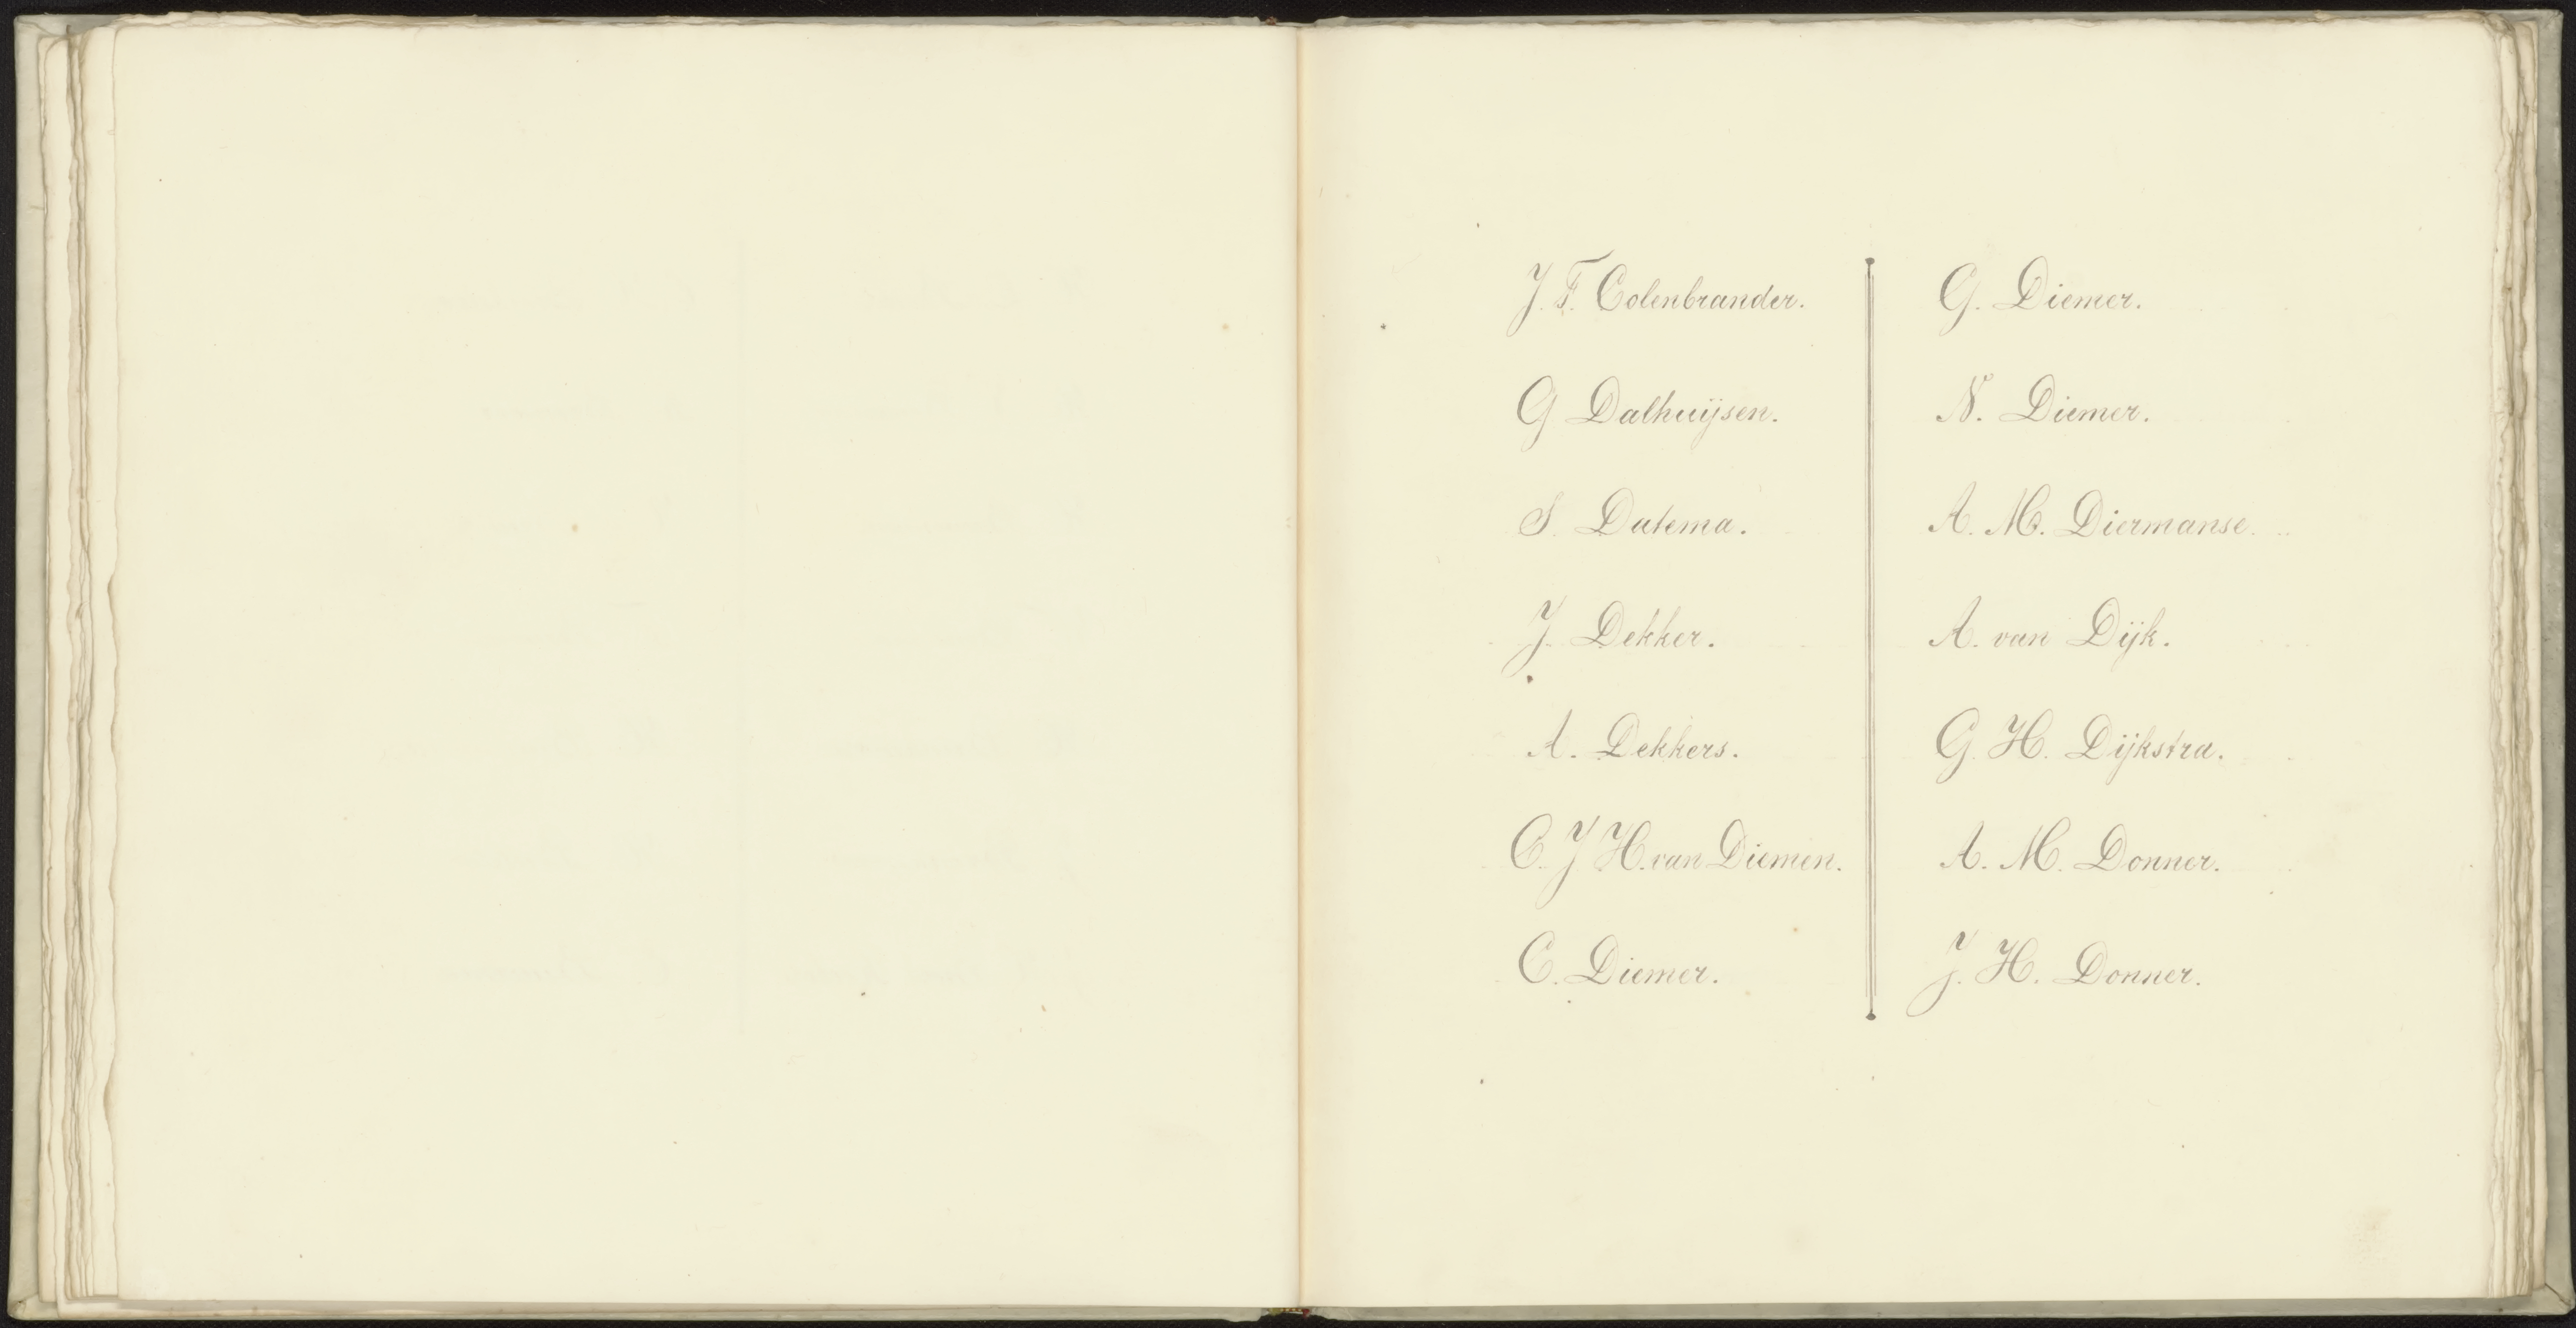 J. F. Colenbrander.
G Dalhuijsen.
S. Datema.
J. Dekker.
A. Dekkers.
C. J H. van Diemen.
C. Diemer.
G. Diemer.
N. Diemer.
A. M. Diermanse.
A. van Dijk.
G. H. Dijkstra.
A. M. Donner.
J. H. Donner.